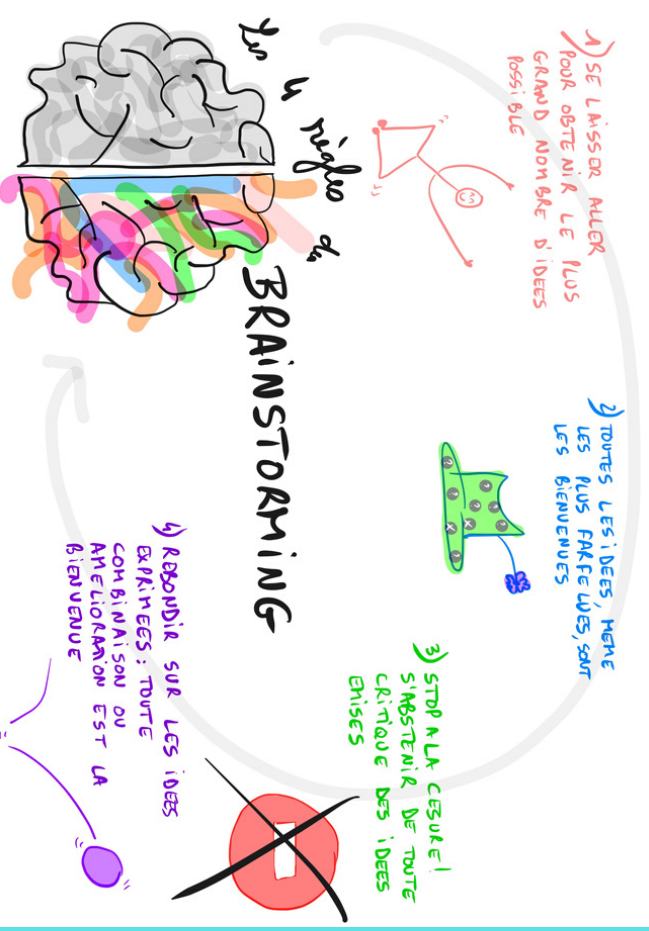 Les 4 règles du
BRAINSTORMING
1) SE LAISSER ALLER
POUR OBTENIR LE PLUS
GRAND NOMBRE D'IDEES
POSSIBLE
2) TOUTES LES iDEES, MEME
LES PLUS FARFELUES, SONT
LES BIENVENUES
3) STOP A LA CESURE!
S'ABSTENIR DE TOUTE
CRITIQUE DES iDEES
EMISES
4) REBONDIR SUR LES iDEES
EXPRIMEES : TOUTE
COMBINAISON OU
AMELIORATION EST LA
BIENVENUE